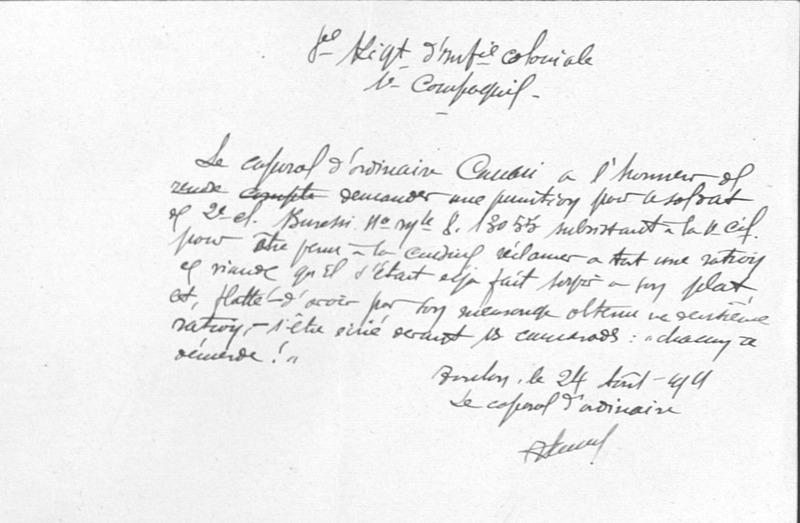 8e Régt d'Infie coloniale
1e Compagnie -
Le caporal d'ordinaire a l'honneur de
rendre compte demander une punition pour le soldat
de 2e cl. Buresi No mle 8.13055 subsistant à la 1e Cie.
pour être venu à la cuisine réclamer à tort une ration
de viande qu'il s'était déjà fait servir à son plat
et, flatté d'avoir par son mensonge obtenu une deuxième
ration, s'être écrié devant les camarades : "chacun se
démerde !"
Toulon, le 24 Août
Le caporal d'ordinaire